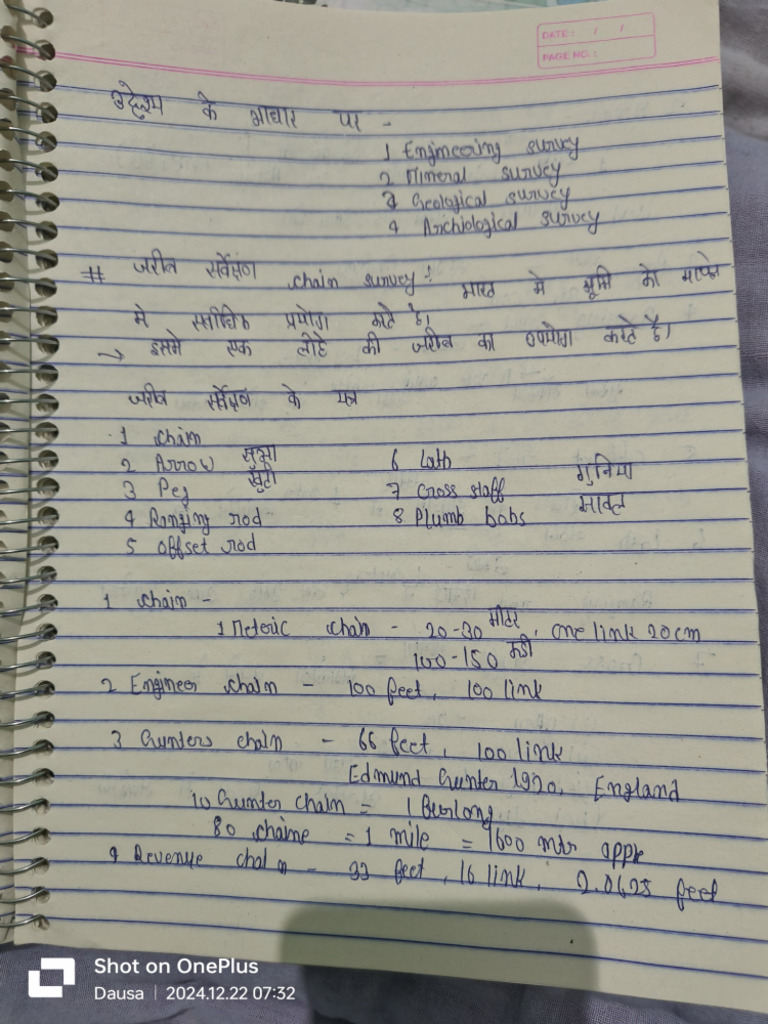 DATE: / /
PAGE NO.:
उद्देश्य के आधार पर -
1 Engineering survey
2 Mineral survey
3 Geological survey
4 Archiological survey
# जरीब सर्वेक्षण chain survey! भारत मे भूमि को मापने
मे सर्वाधिक प्रयोग करते है।
→ इसमे एक लोहे की जरीब का उपयोग करते है।
जरीब सर्वेक्षण के यंत्र
1 chain
2 Arrow सुआ
3 Peg खुंटी
4 Ranging rod
5 offset rod
6 Lath
7 Cross staff गुनिया
8 Plumb bobs साहुल
1 chain -
1 Meteric chain - 20-30 मीटर, one link 20cm
100-150 कडी
2 Engineer chain - 100 feet, 100 link
3 Gunters chain - 66 feet, 100 link
Edmund Gunter 1920, England
10 Gunter chain = 1 Burlong
80 chaine = 1 mile = 1600 mtr appx
4 Revenue chain - 33 feet, 16 link, 2.0625 feet
Shot on OnePlus
Dausa | 2024.12.22 07:32